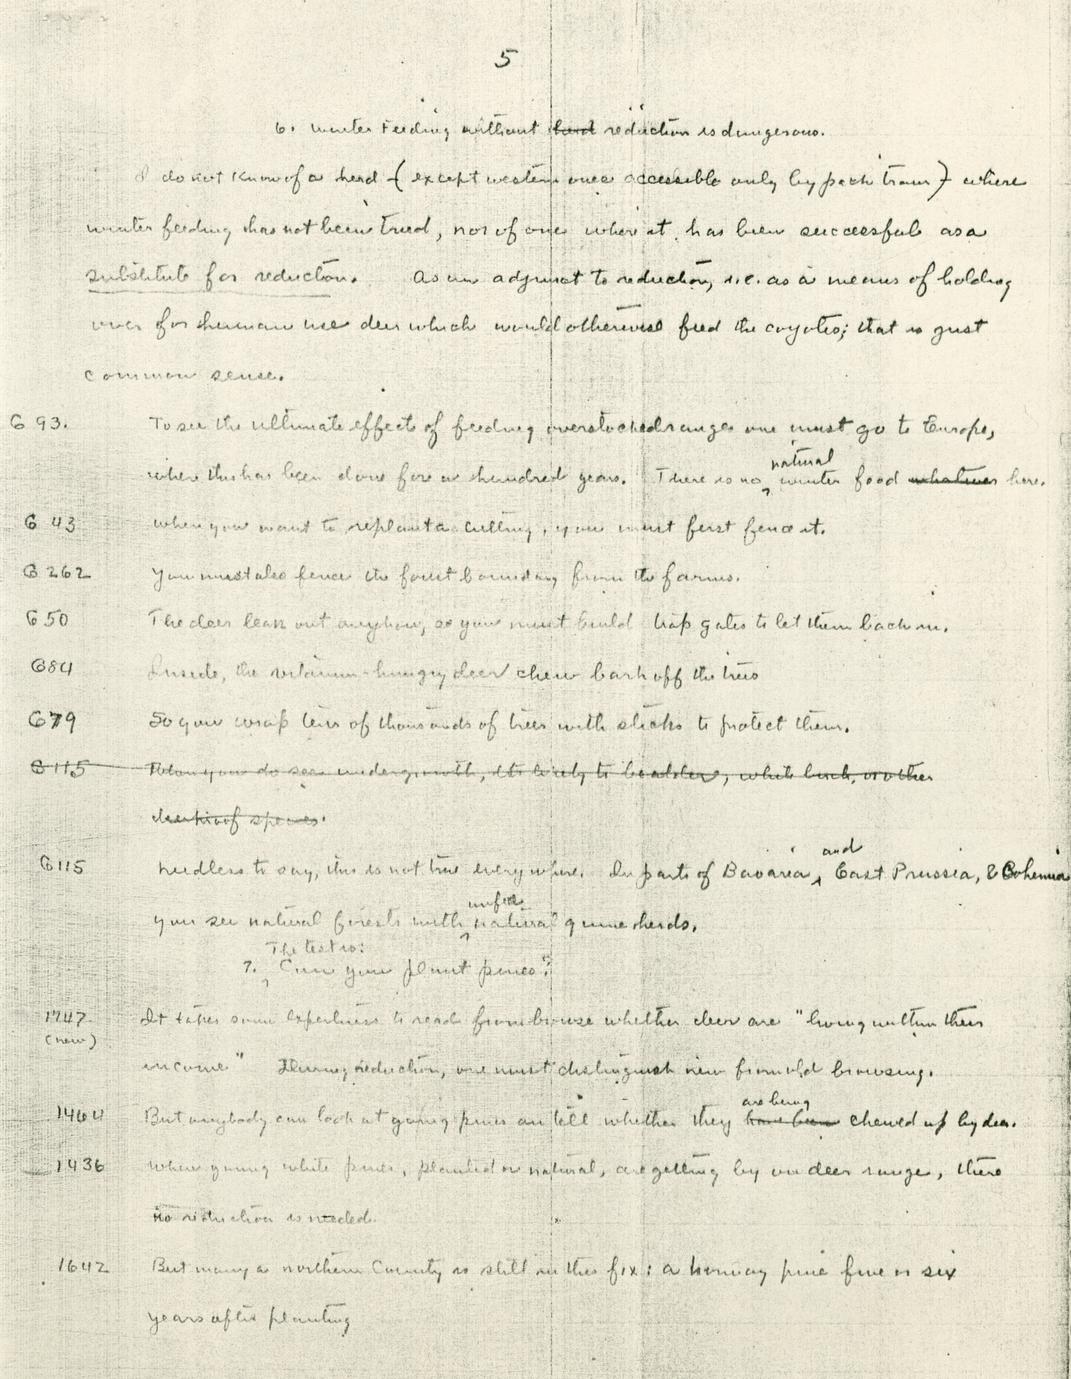 5
6. Winter Feeding without herd reduction is dangerous.
I do not know of a herd (except western ones accessible only by pack train) where
winter feeding has not been tried, nor of one where it has been successful as a
substitute for reduction. As an adjunct to reduction, i.e. as a means of holding
over for human use deer which would otherwise feed the coyotes; that is just
common sense.
G 93. To see the ultimate effects of feeding overstocked ranges one must go to Europe,
where this has been done for a hundred years. There is no natural winter food whatever here.
G 43 When you want to replant a cutting, you must first fence it.
G 262 You must also fence the forest boundary from the farms.
G 50 The deer leak out anyhow, so you must build trap gates to let them back in.
G 84 Inside, the vitamin-hungry deer chew bark off the trees
G 79 So you wrap tens of thousands of trees with sticks to protect them.
G 115 When you do see undergrowth, it's likely to be alder, white birch, or other
deerproof species.
G 115 Needless to say, this is not true everywhere. In parts of Bavaria, and East Prussia, & Bohemia
you see natural forests with unfed natural game herds.
The test is:
7. Can you plant pines?
1747 It takes some expertness to read from browse whether deer are "living within their
(new)
income" During reduction, one must distinguish new from old browsing.
1464 But anybody can look at young pines an tell whether they have been are being chewed up by deer.
1436 When young white pines, planted or natural, are getting by on deer range, there
no reduction is needed.
1642 But many a northern County is still in this fix: a Norway pine five or six
years after planting